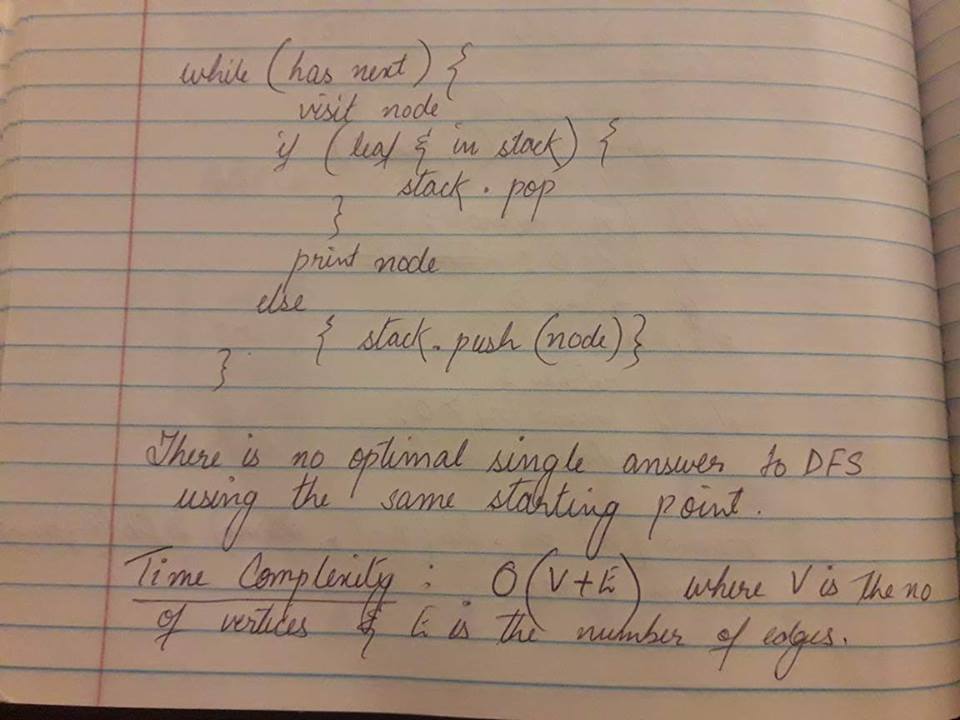 while (has next) {
visit node
if (leaf & in stack) {
stack . pop
}
print node
else
{ stack . push (node) }
}
There is no optimal single answer to DFS
using the same starting point.
Time Complexity : O(V+E) where V is the no
of vertices & E is the number of edges.